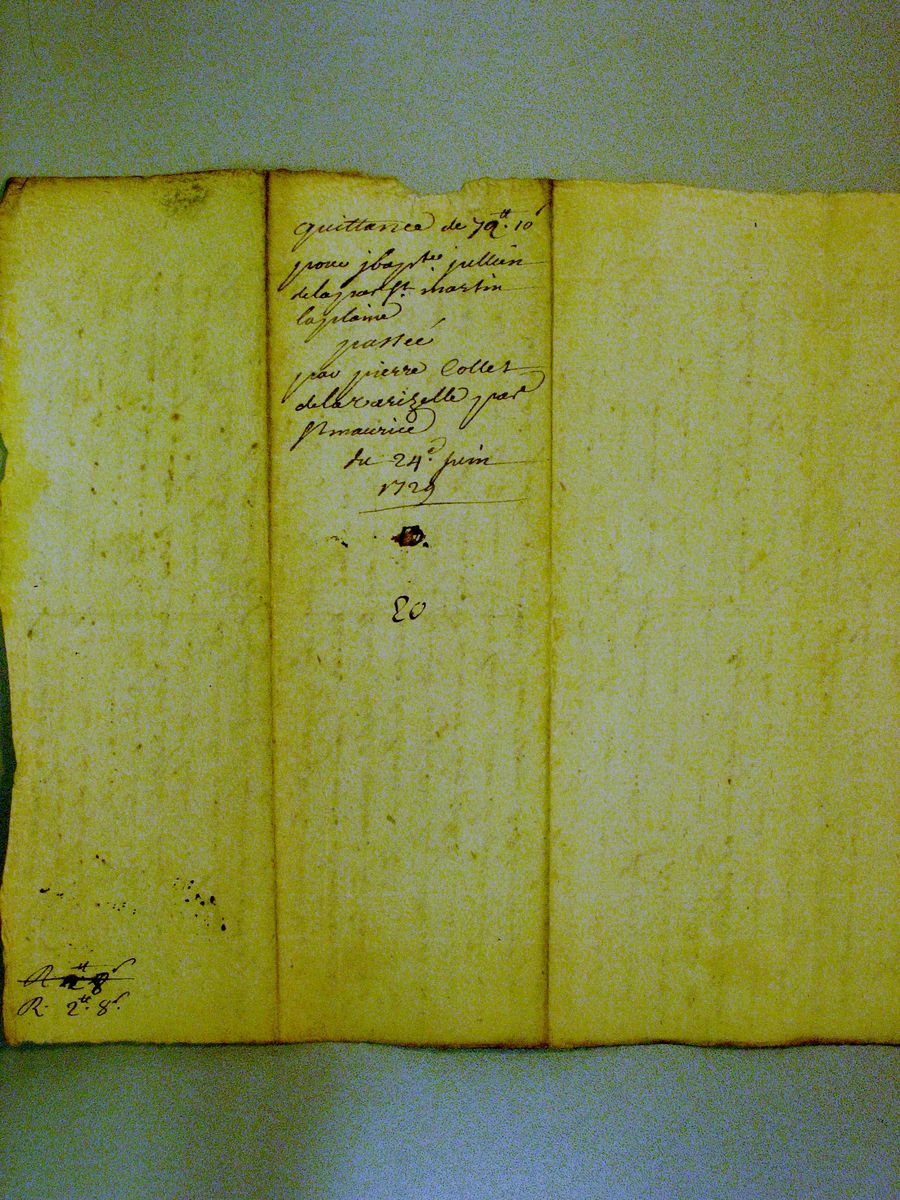 quittance de 72ᵗᵗ. 10ˢ
pour jbap.te jullien
dela par St. martin
laplaine
passée
par pierre Collet
dela varizelle par
St maurice
du 24e. juin
1729
20
R. 2ᵗᵗ. 8ˢ.
R. 2ᵗᵗ. 8ˢ.